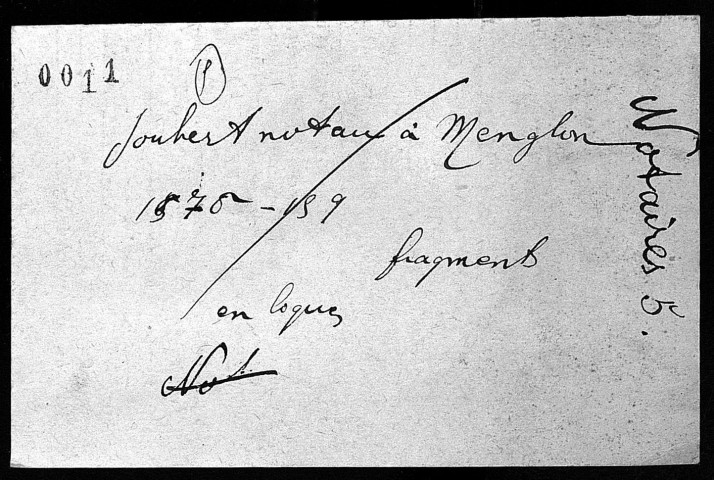 0011
Joubert notaire à Menglon
fragments
en loques
Not
Notaires 5.